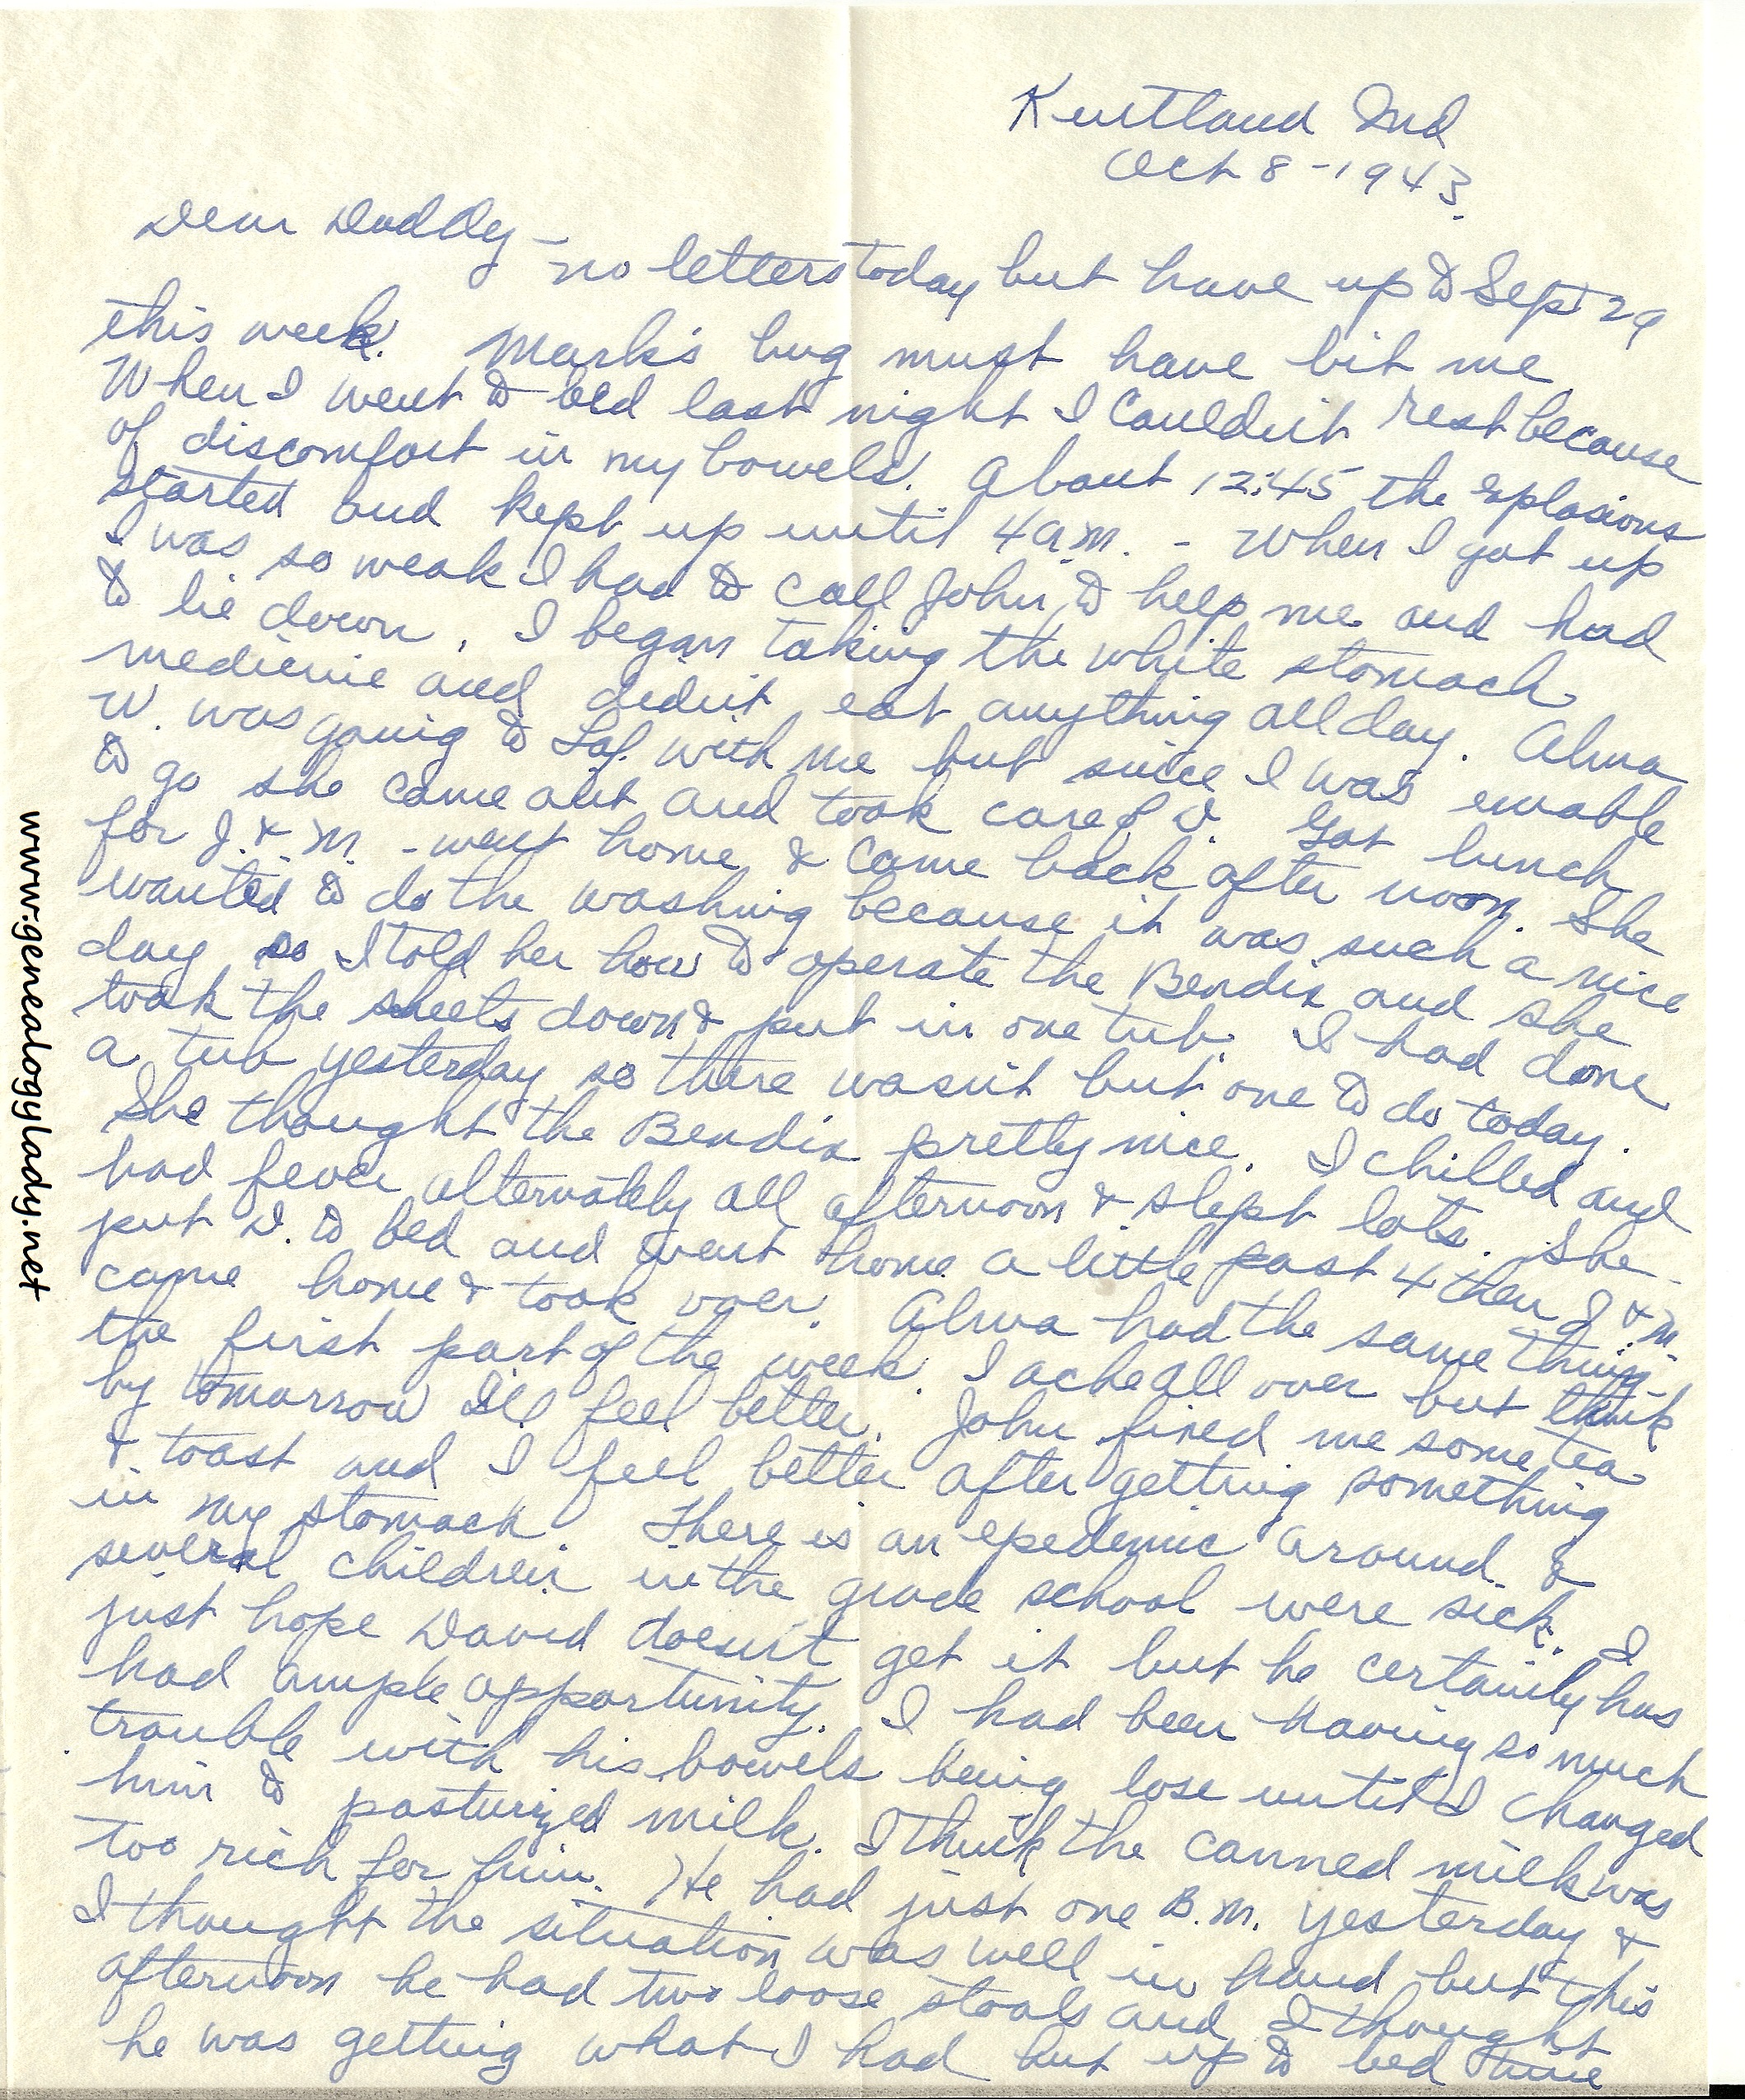 Kentland Ind
Oct 8 - 1943.
Dear Daddy -
no letters today but have up to Sept 29
this week. Mark's bug must have bit me.
When I went to bed last night I couldn't rest because
of discomfort in my bowels. About 12:45 the explosions
started and kept up until 4 a.m. - When I got up
I was so weak I had to call John to help me and had
to lie down. I began taking the white stomach
medicine and didn't eat anything all day. Alma
W. was going to Laf. with me but since I was unable
to go she came out and took care of D. Got lunch
for J. & M. - went home & came back after noon. She
wanted to do the washing because it was such a nice
day so I told her how to operate the Bendix and she
took the sheets down & put in one tub. I had done
a tub yesterday so there wasn't but one to do today.
She thought the Bendix pretty nice. I chilled and
had fever alternately all afternoon & slept lots. She
put D. to bed and went home a little past 4 then J & M.
came home & took over. Alma had the same thing
the first part of the week. I ache all over but think
by tomorrow I'll feel better. John fixed me some tea
& toast and I feel better after getting something
in my stomach. There is an epedemic around &
several children in the grade school were sick. I
just hope David doesn't get it but he certainly has
had ample opportunity. I had been having so much
trouble with his bowels being lose until I changed
him to pasturized milk. I think the canned milk was
too rich for him. He had just one B.M. yesterday &
I thought the situation was well in hand but this
afternoon he had two loose stools and I thought
he was getting what I had but up to bed time
www.genealogylady.net